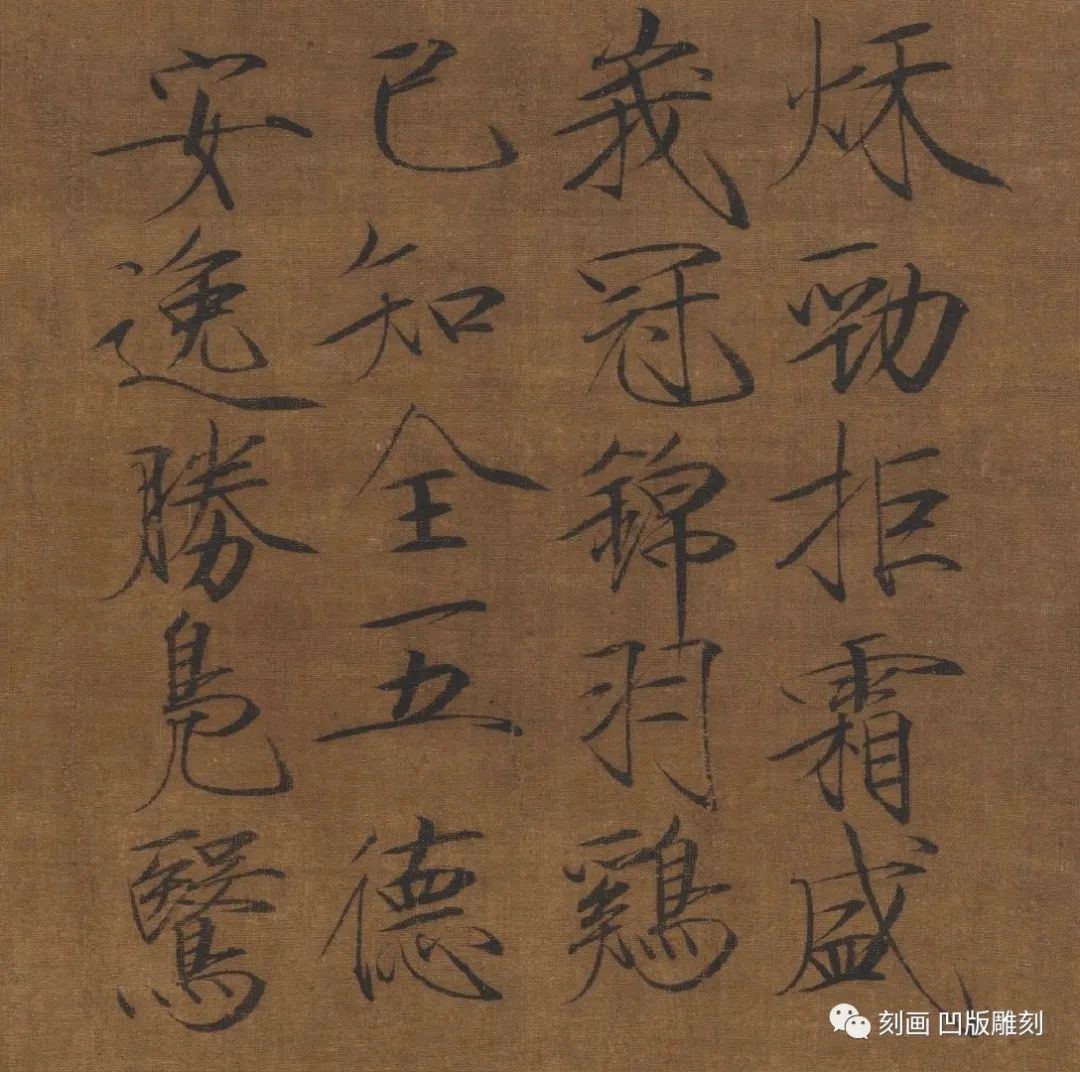 秌勁拒霜盛
峩冠錦羽鷄
已知全五德
安逸勝鳧鷖
刻画 凹版雕刻